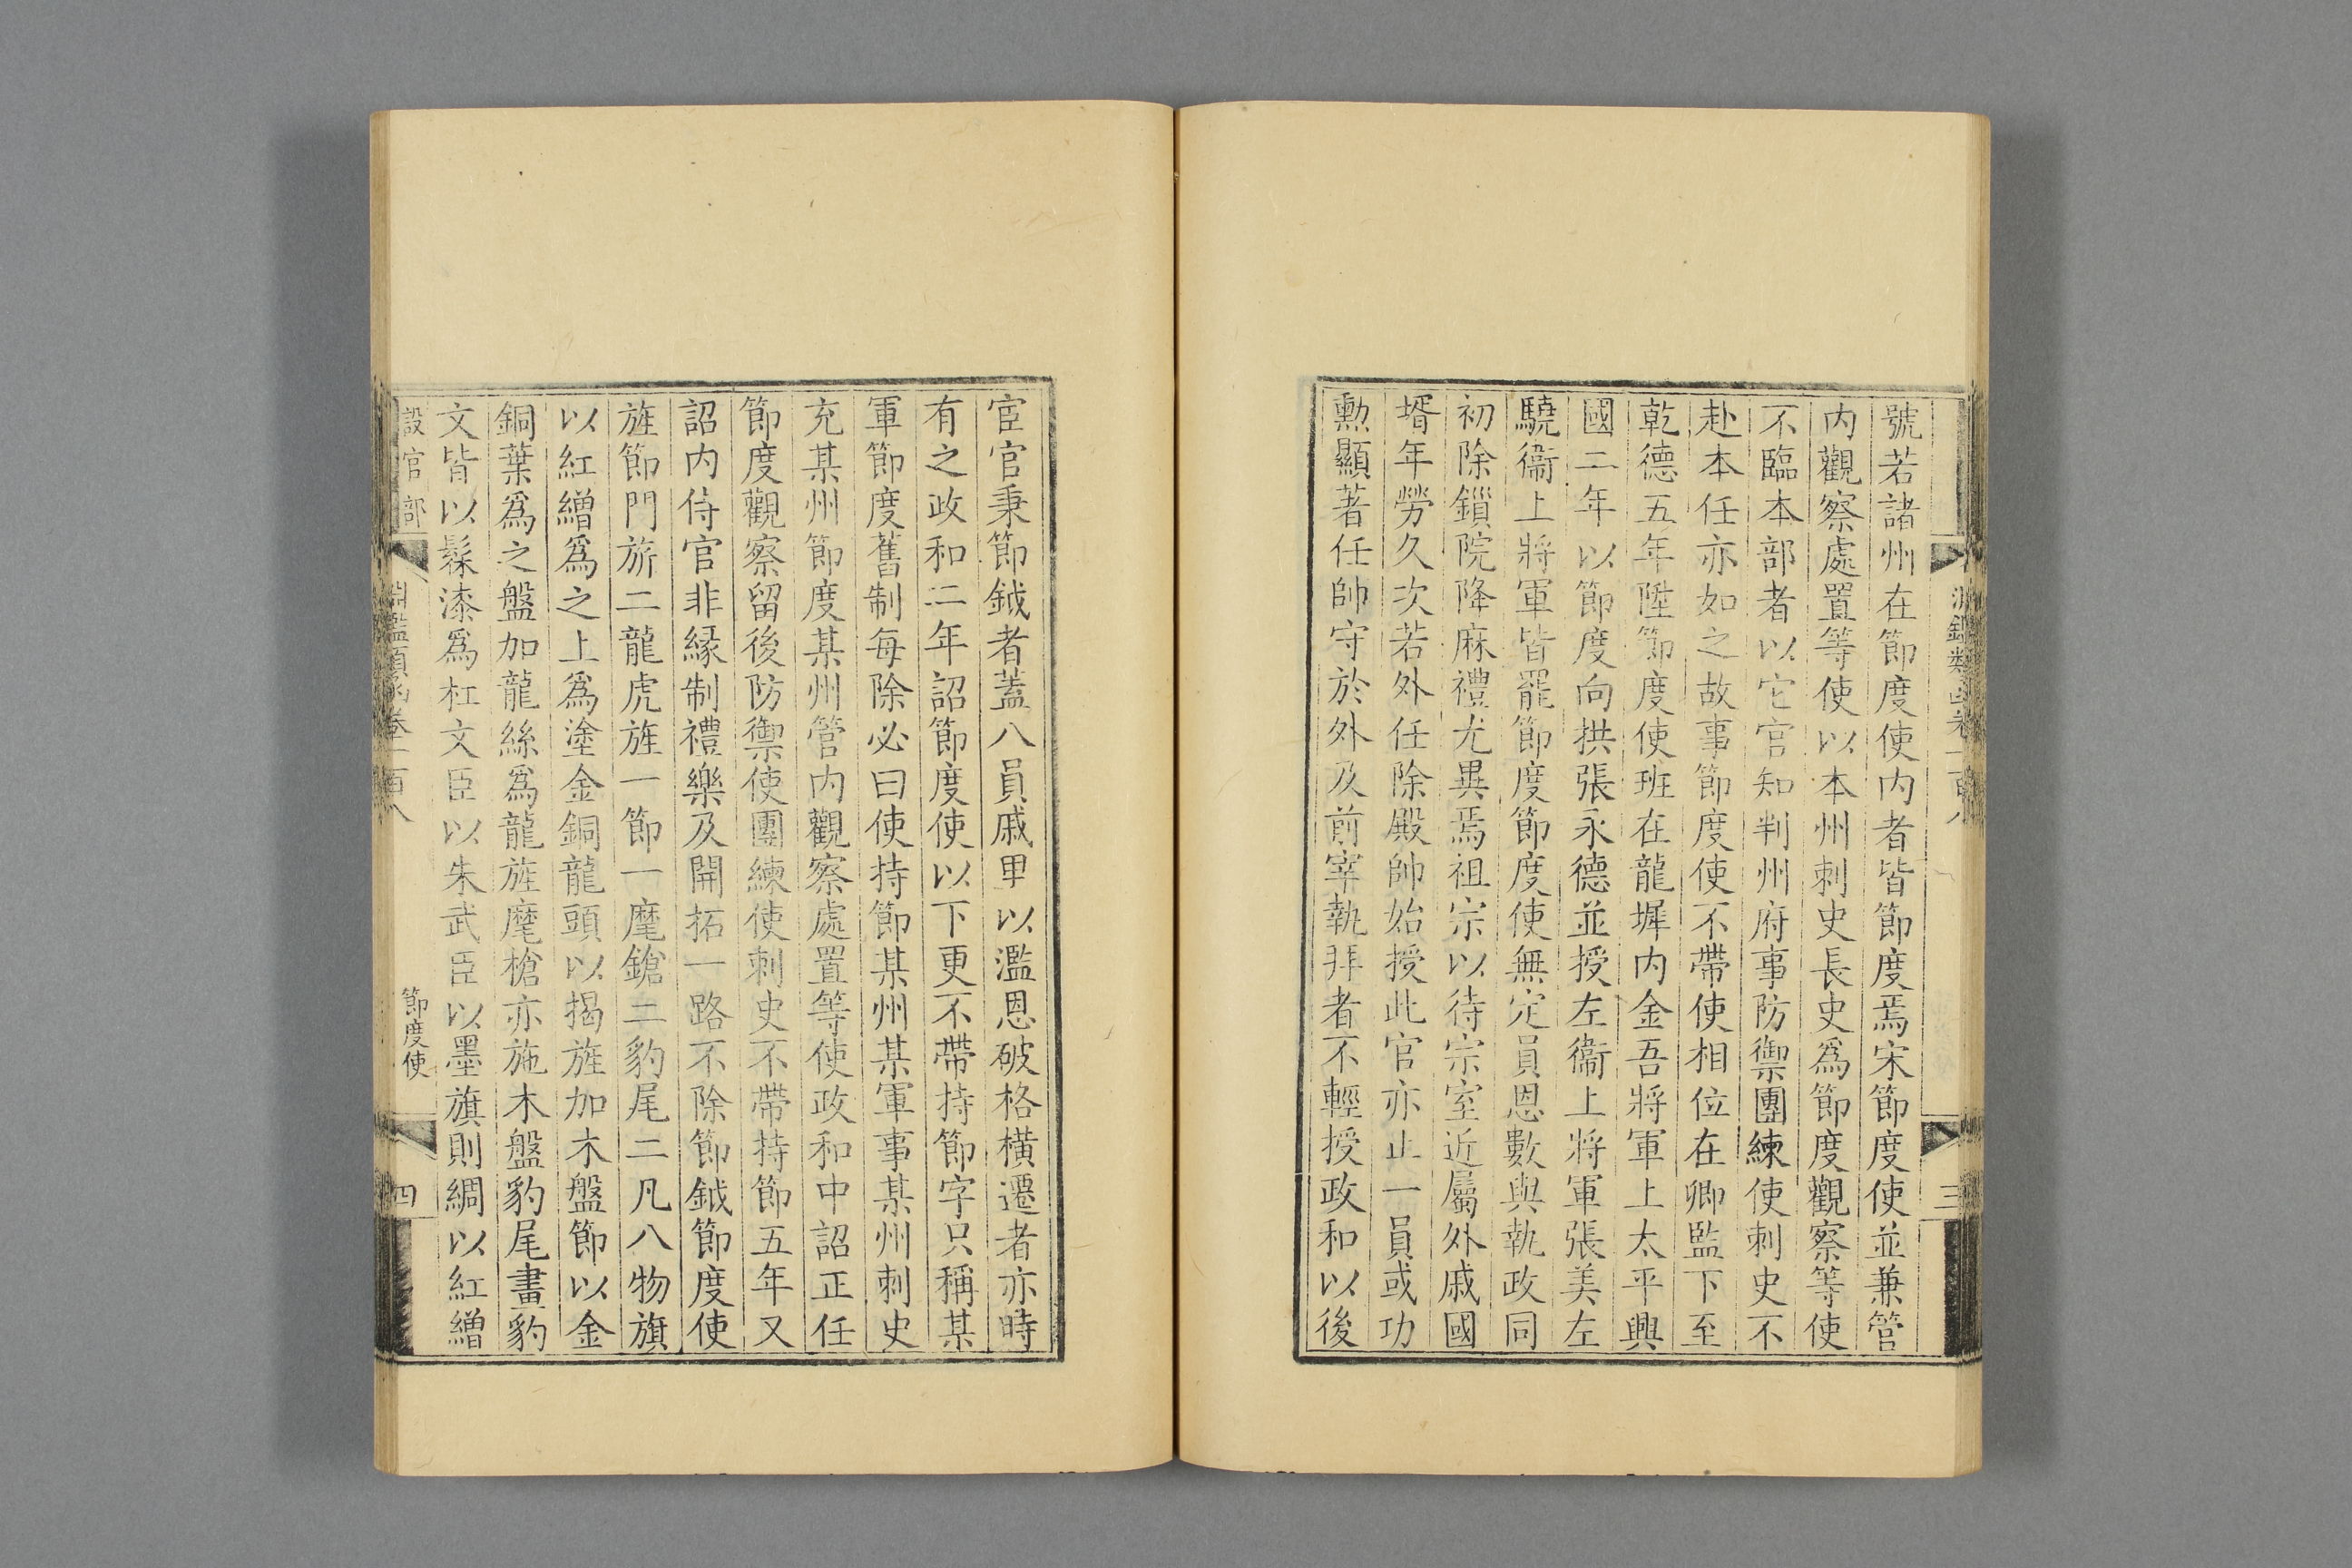 號若諸州在節度使内者皆節度焉宋節度使並兼管
内觀察處置等使以本州刺史長史爲節度觀察等使
不臨本部者以它官知判州府事防禦團練使刺史不
赴本任亦如之故事節度使不帶使相位在卿監下至
乾德五年陞節度使班在龍墀内金吾將軍上太平興
國二年以節度向拱張永德並授左衞上將軍張美左
驍衞上將軍皆罷節度節度使無定員恩數與執政同
初除鎖院降麻禮尤異焉祖宗以待宗室近屬外戚國
壻年勞久次若外任除殿帥始授此官亦止一員或功
勲顯著任帥守於外及前宰執拜者不輕授政和以後
宦官秉節鉞者蓋八員戚里以濫恩破格橫遷者亦時
有之政和二年詔節度使以下更不帶持節字只稱某
軍節度舊制每除必曰使持節某州某軍事某州刺史
充某州節度某州管内觀察處置等使政和中詔正任
節度觀察留後防禦使團練使刺史不帶持節五年又
詔内侍官非縁制禮樂及開拓一路不除節鉞節度使
旌節門旂二龍虎旌一節一麾鎗二豹尾二凡八物旗
以紅繒爲之上爲塗金銅龍頭以揭旌加木盤節以金
銅葉爲之盤加龍絲爲龍旌麾槍亦施木盤豹尾畫豹
文皆以髹漆爲杠文臣以朱武臣以墨旗則綢以紅繒
設官部
淵鑑類函卷一百八
節度使
四